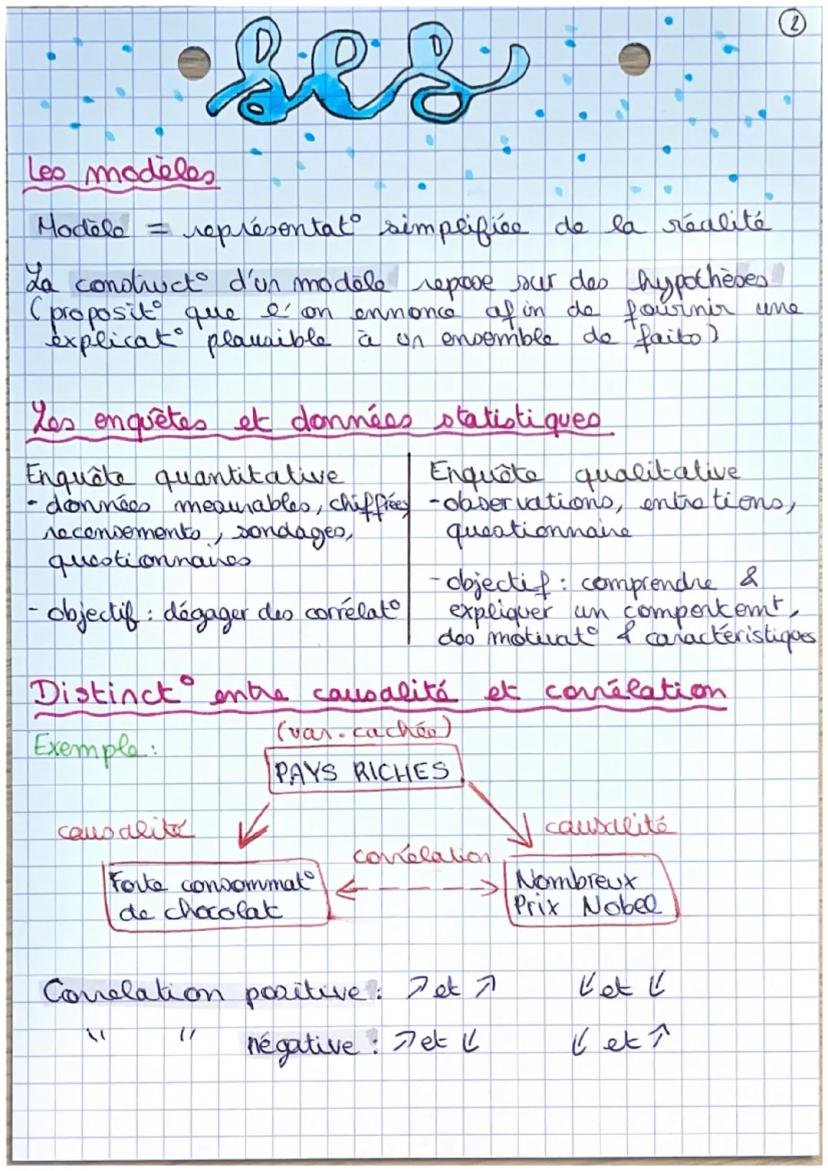 2
ses
Les modèles
Modèle = représentat° simplifiée de la réalité
La construct° d'un modèle repose sur des hypothèses
(proposit° que l'on ennonce afin de fournir une
explicat° plausible à un ensemble de faits)
Les enquêtes et données statistiques
Enquête quantitative
- données mesurables, chiffrées
recensements, sondages,
questionnaires
- objectif : dégager des corrélat°
Enquête qualitative
- observations, entretions,
questionnaire
- objectif : comprendre &
expliquer un comportemt,
des motivat° & caractéristiques
Distinct° entre causalité et corrélation
Exemple :
(var. cachée)
PAYS RICHES
causalité
causalité
corrélation
Forte consommat°
de chocolat
Nombreux
Prix Nobel
Correlation positive : ↗ et ↗ ↙ et ↙
" " négative : ↗ et ↙ ↙ et ↗